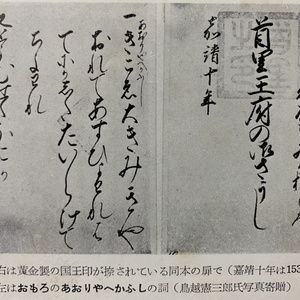 首里王府の御さうし
嘉靖十年
あおりやへかふし
一きこゑ大きみきや
おれてあすひよわれは
てにかした たいらけて
ちよわれ
又とよむせたかこか
右は黄金製の国王印が捺されている同本の扉で（嘉靖十年は153
左はおもろのあおりやへかふしの詞（鳥越憲三郎氏写真寄贈）